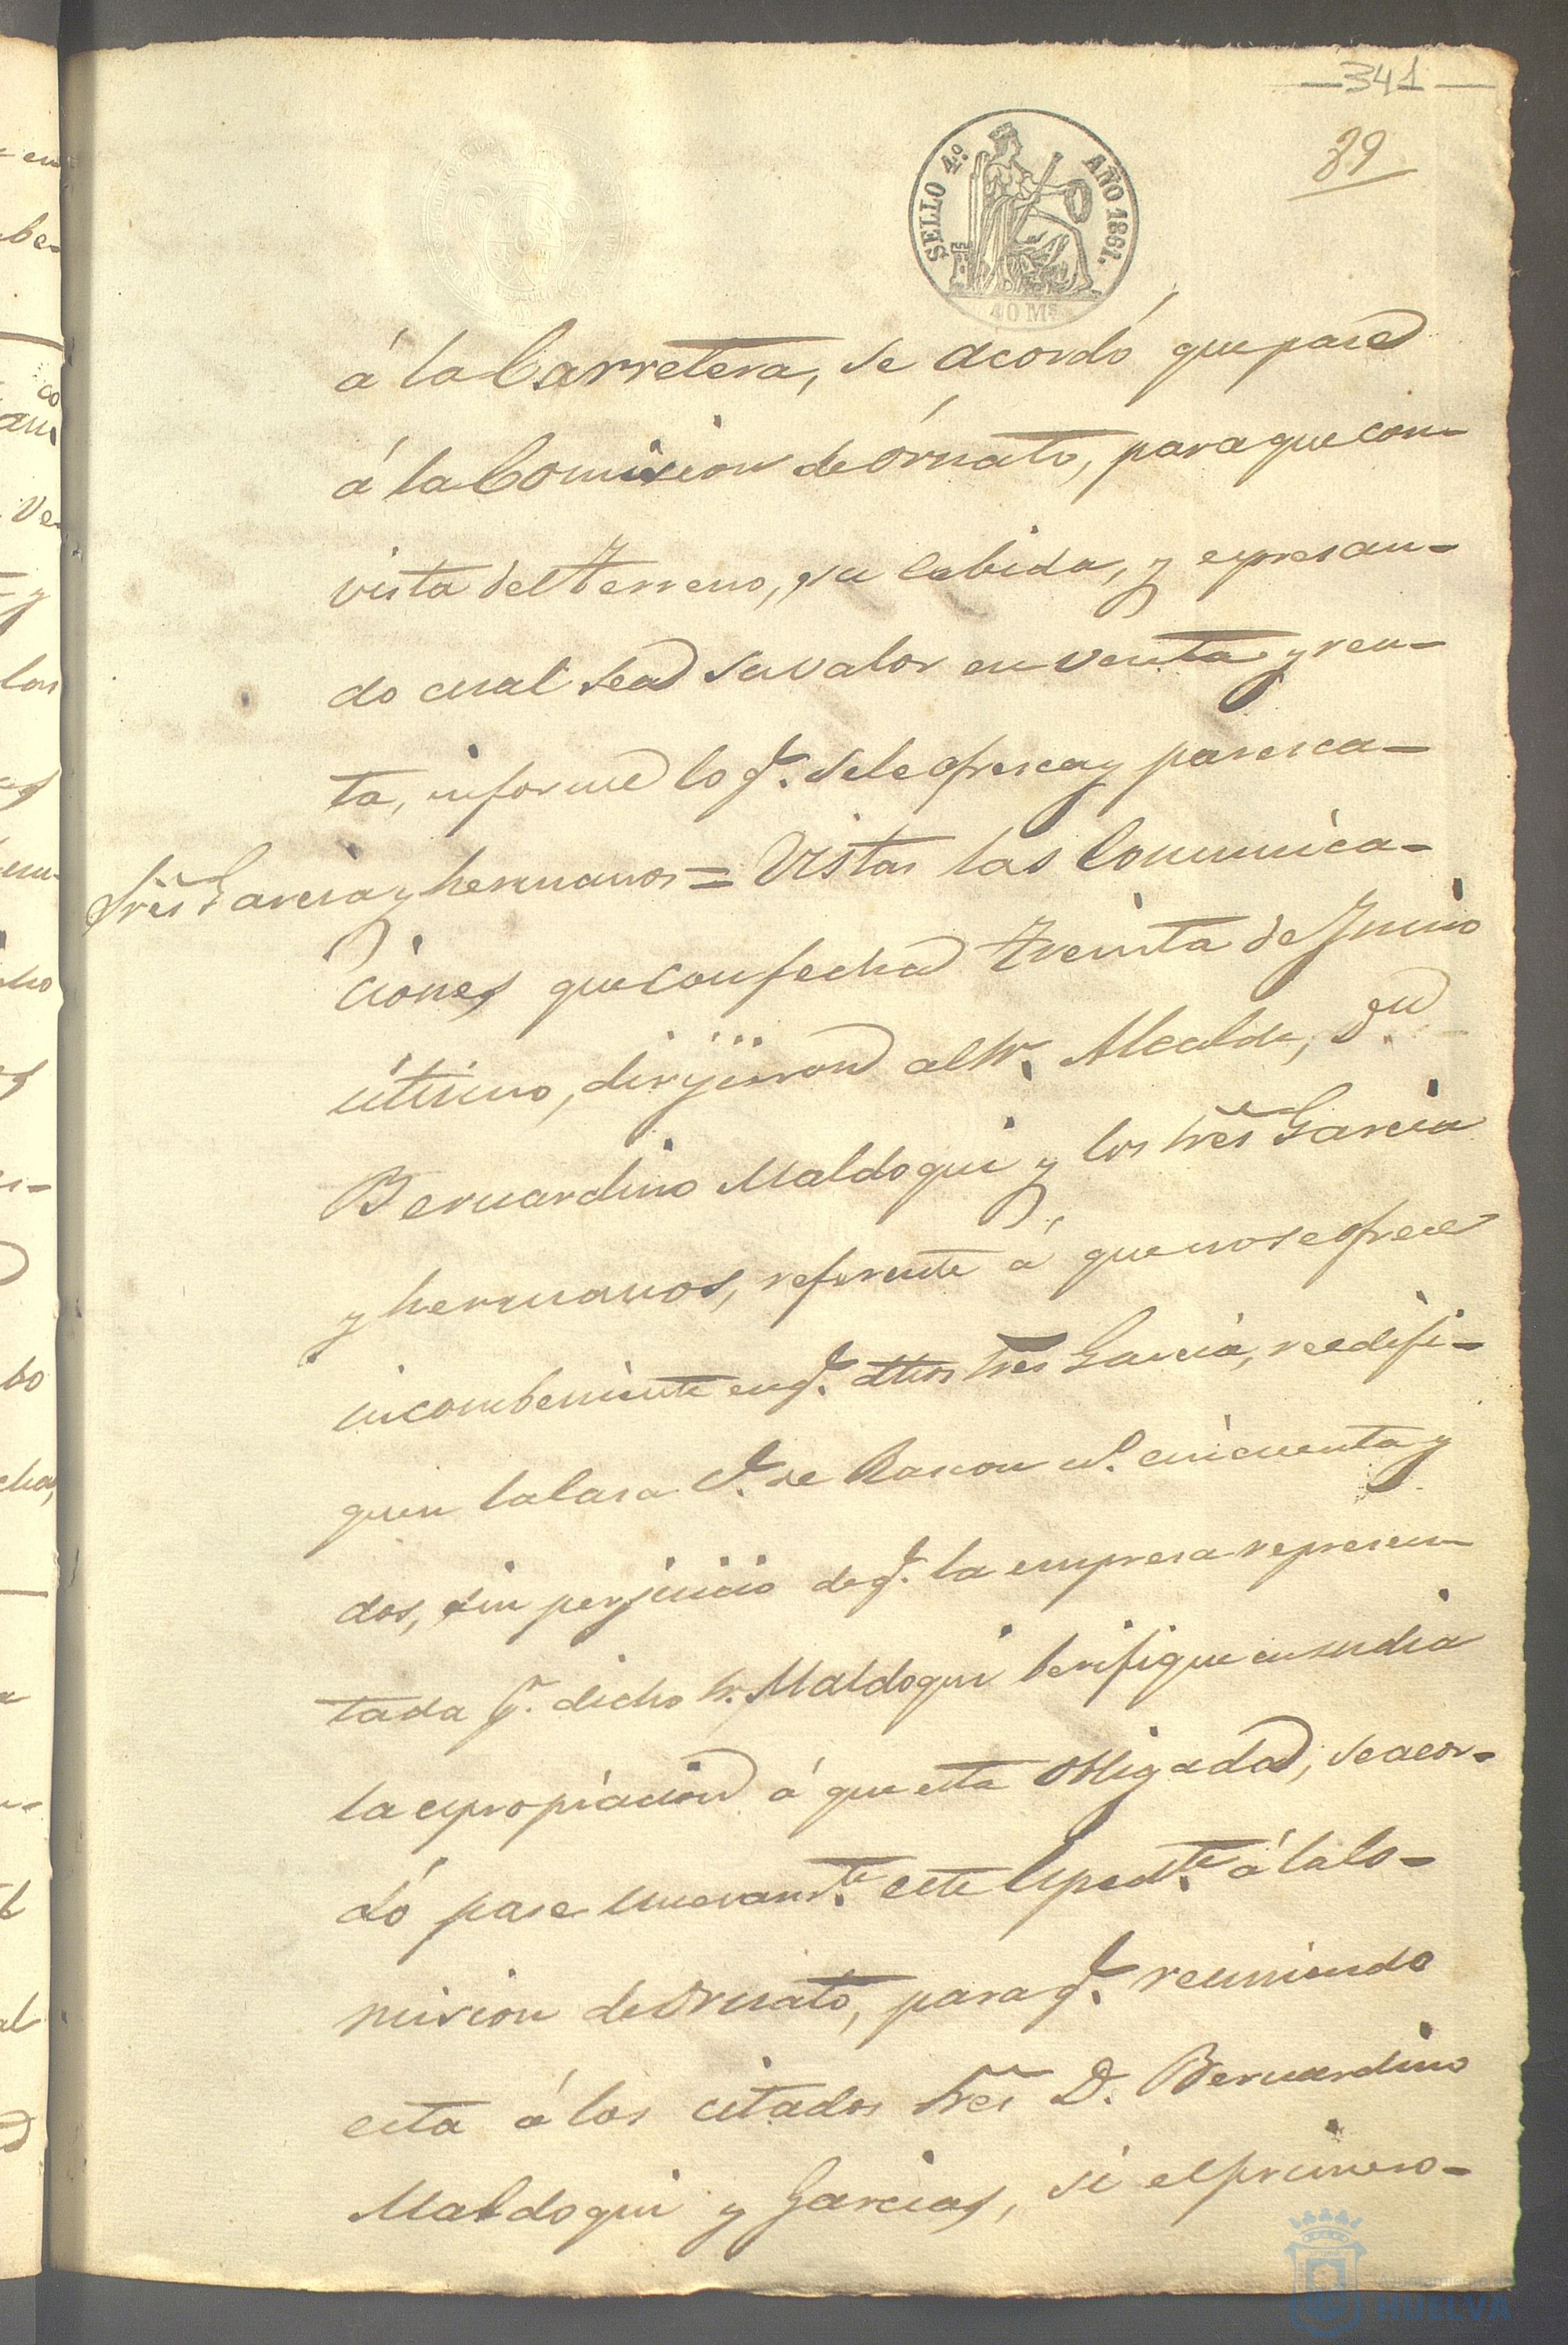 —341—
39
SELLO 4º. AÑO 1861.
40 Ms
á la Carretera, se acordó que pase
á la Comision de órnato, para que con
vista del terreno, su cabida, y espresan-
do cual sea su valor en venta y ren-
ta, informe lo q.e se le ofresca y paresca—
Sres. Garcia y hermanos = Vistas las Comunica-
ciones que con fecha treinta de Junio
último, dirijieron al Sr. Alcalde, D.n
Bernardino Maldoqui y los Sres Garcia
y hermanos, referente á que no se ofrece
incombeniente en q.e dhos Sres Garcia, reedifi-
quen la Casa C.e de Rascon n.º cincuenta y
dos, sin perjuicio de q.e la empresa represen-
tada p.r dicho Sr. Maldoqui berifique en su dia
la espropiacion á que esta obligada, se acor-
dó pase nuevam.te este Esped.te á la Co-
mision de Ornato, para q.e reuniendo
esta á los citados Sres D. Bernardino
Maldoqui y Garcias, si el primero—
Ayuntamiento de
HUELVA